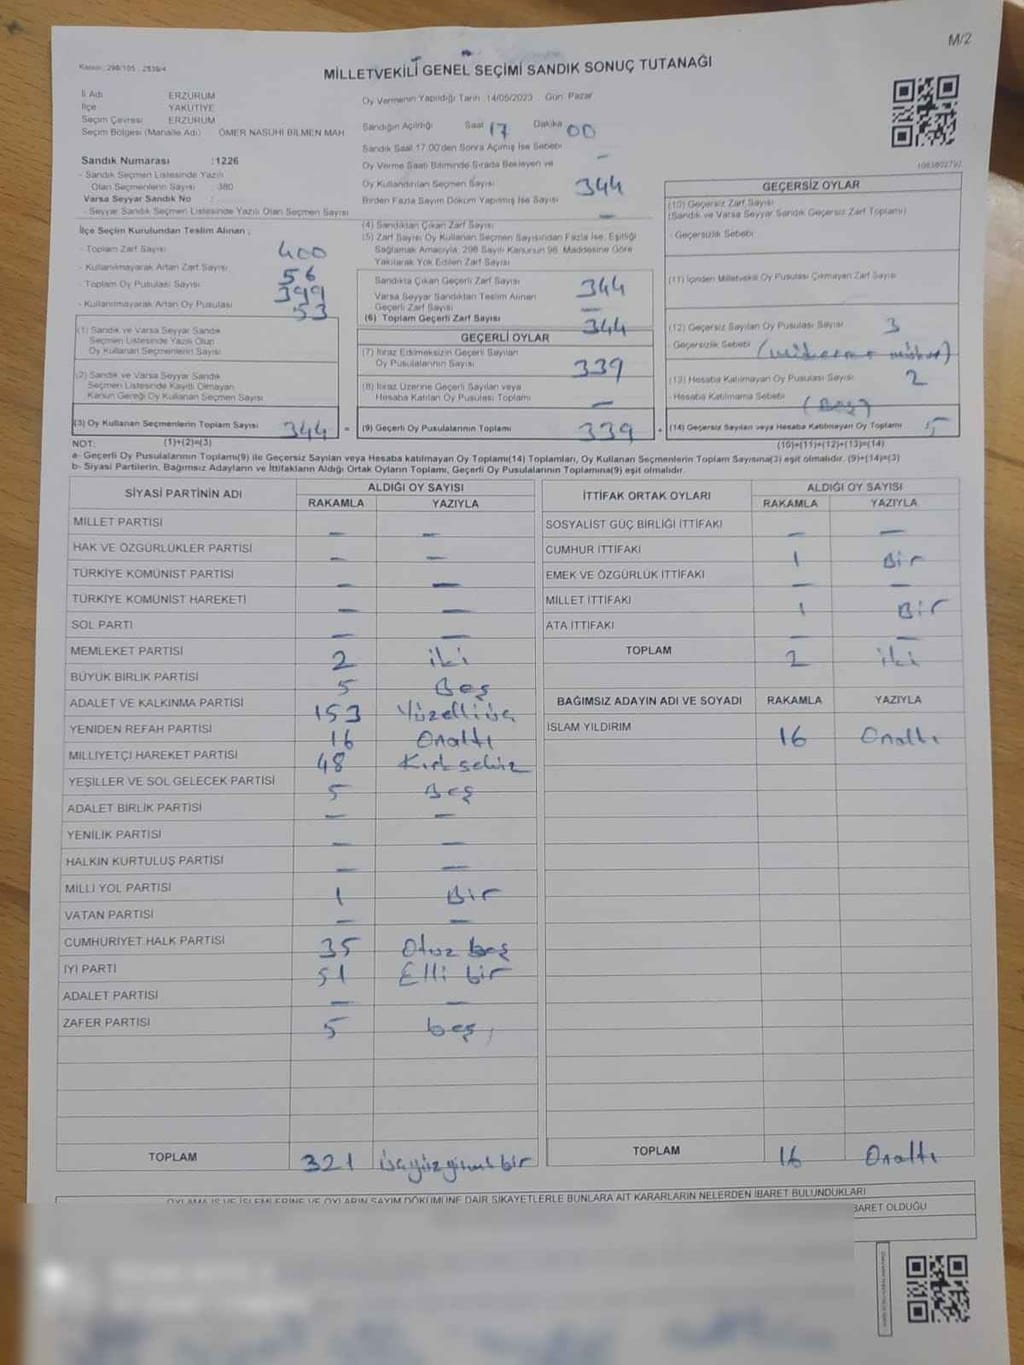 M/2
Kanun: 298/105 , 2839/4
MİLLETVEKİLİ GENEL SEÇİMİ SANDIK SONUÇ TUTANAĞI
İl Adı ERZURUM
İlçe YAKUTİYE
Seçim Çevresi ERZURUM
Seçim Bölgesi (Mahalle Adı) ÖMER NASUHİ BİLMEN MAH
Sandık Numarası :1226
- Sandık Seçmen Listesinde Yazılı
Olan Seçmenlerin Sayısı : 380
Varsa Seyyar Sandık No :
- Seyyar Sandık Seçmen Listesinde Yazılı Olan Seçmen Sayısı
İlçe Seçim Kurulundan Teslim Alınan ;
- Toplam Zarf Sayısı 400
- Kullanılmayarak Artan Zarf Sayısı 56
- Toplam Oy Pusulası Sayısı 399
- Kullanılmayarak Artan Oy Pusulası 53
(1) Sandık ve Varsa Seyyar Sandık
Seçmen Listesinde Yazılı Olup
Oy Kullanan Seçmenlerin Sayısı
(2) Sandık ve Varsa Seyyar Sandık
Seçmen Listesinde Kayıtlı Olmayan
Kanun Gereği Oy Kullanan Seçmen Sayısı
(3) Oy Kullanan Seçmenlerin Toplam Sayısı 344 =
(1)+(2)=(3)
Oy Vermenin Yapıldığı Tarih :14/05/2023 , Gün: Pazar
Sandığın Açıldığı Saat 17 Dakika 00
Sandık Saat 17:00'den Sonra Açılmış İse Sebebi
Oy Verme Saati Bitiminde Sırada Bekleyen ve —
Oy Kullandırılan Seçmen Sayısı 344
Birden Fazla Sayım Döküm Yapılmış İse Sayısı —
(4) Sandıktan Çıkan Zarf Sayısı
(5) Zarf Sayısı Oy Kullanan Seçmen Sayısından Fazla İse, Eşitliği
Sağlamak Amacıyla, 298 Sayılı Kanunun 98. Maddesine Göre
Yakılarak Yok Edilen Zarf Sayısı
Sandıkta Çıkan Geçerli Zarf Sayısı 344
Varsa Seyyar Sandıktan Teslim Alınan
Geçerli Zarf Sayısı —
(6) Toplam Geçerli Zarf Sayısı 344
GEÇERLİ OYLAR
(7) İtiraz Edilmeksizin Geçerli Sayılan
Oy Pusulalarının Sayısı 339
(8) İtiraz Üzerine Geçerli Sayılan veya
Hesaba Katılan Oy Pusulası Toplamı —
(9) Geçerli Oy Pusulalarının Toplamı 339 +
GEÇERSİZ OYLAR
(10) Geçersiz Zarf Sayısı
(Sandık ve Varsa Seyyar Sandık Geçersiz Zarf Toplamı)
- Geçersizlik Sebebi
(11) İçinden Milletvekili Oy Pusulası Çıkmayan Zarf Sayısı
(12) Geçersiz Sayılan Oy Pusulası Sayısı 3
Geçersizlik Sebebi
(13) Hesaba Katılmayan Oy Pusulası Sayısı 2
- Hesaba Katılmama Sebebi (Boş)
(14) Geçersiz Sayılan veya Hesaba Katılmayan Oy Toplamı 5
(10)+(11)+(12)+(13)=(14)
NOT:
a- Geçerli Oy Pusulalarının Toplamı(9) ile Geçersiz Sayılan veya Hesaba katılmayan Oy Toplamı(14) Toplamları, Oy Kullanan Seçmenlerin Toplam Sayısına(3) eşit olmalıdır. (9)+(14)=(3)
b- Siyasi Partilerin, Bağımsız Adayların ve İttifakların Aldığı Ortak Oyların Toplamı, Geçerli Oy Pusulalarının Toplamına(9) eşit olmalıdır.
SİYASİ PARTİNİN ADI ALDIĞI OY SAYISI
RAKAMLA YAZIYLA
MİLLET PARTİSİ — —
HAK VE ÖZGÜRLÜKLER PARTİSİ — —
TÜRKİYE KOMÜNİST PARTİSİ — —
TÜRKİYE KOMÜNİST HAREKETİ — —
SOL PARTİ — —
MEMLEKET PARTİSİ 2 iki
BÜYÜK BİRLİK PARTİSİ 5 Beş
ADALET VE KALKINMA PARTİSİ 153 Yüzelliüç
YENİDEN REFAH PARTİSİ 16 Onaltı
MİLLİYETÇİ HAREKET PARTİSİ 48 Kırksekiz
YEŞİLLER VE SOL GELECEK PARTİSİ 5 Beş
ADALET BİRLİK PARTİSİ — —
YENİLİK PARTİSİ — —
HALKIN KURTULUŞ PARTİSİ — —
MİLLİ YOL PARTİSİ 1 Bir
VATAN PARTİSİ — —
CUMHURİYET HALK PARTİSİ 35 Otuz beş
İYİ PARTİ 51 Elli bir
ADALET PARTİSİ — —
ZAFER PARTİSİ 5 beş
TOPLAM 321 üçyüzyirmi bir
İTTİFAK ORTAK OYLARI ALDIĞI OY SAYISI
RAKAMLA YAZIYLA
SOSYALİST GÜÇ BİRLİĞİ İTTİFAKI — —
CUMHUR İTTİFAKI 1 Bir
EMEK VE ÖZGÜRLÜK İTTİFAKI — —
MİLLET İTTİFAKI 1 Bir
ATA İTTİFAKI — —
TOPLAM 2 iki
BAĞIMSIZ ADAYIN ADI VE SOYADI RAKAMLA YAZIYLA
İSLAM YILDIRIM 16 Onaltı
TOPLAM 16 Onaltı
OYLAMA İŞ VE İŞLEMLERİNE VE OYLARIN SAYIM DÖKÜMÜNE DAİR ŞİKAYETLERLE BUNLARA AİT KARARLARIN NELERDEN İBARET BULUNDUKLARI
BARET OLDUĞU